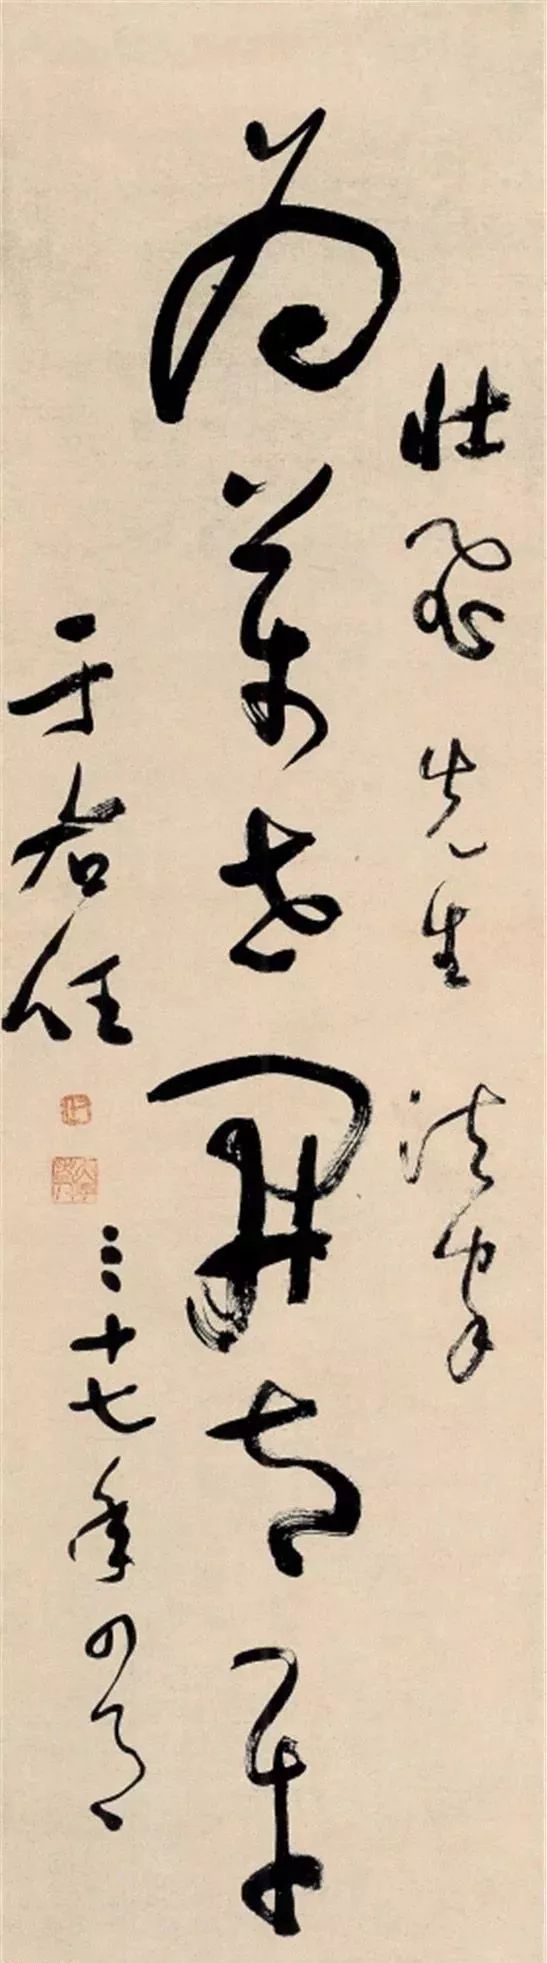 壯飛先生 法家
為萬世開太平
于右任
三十七年